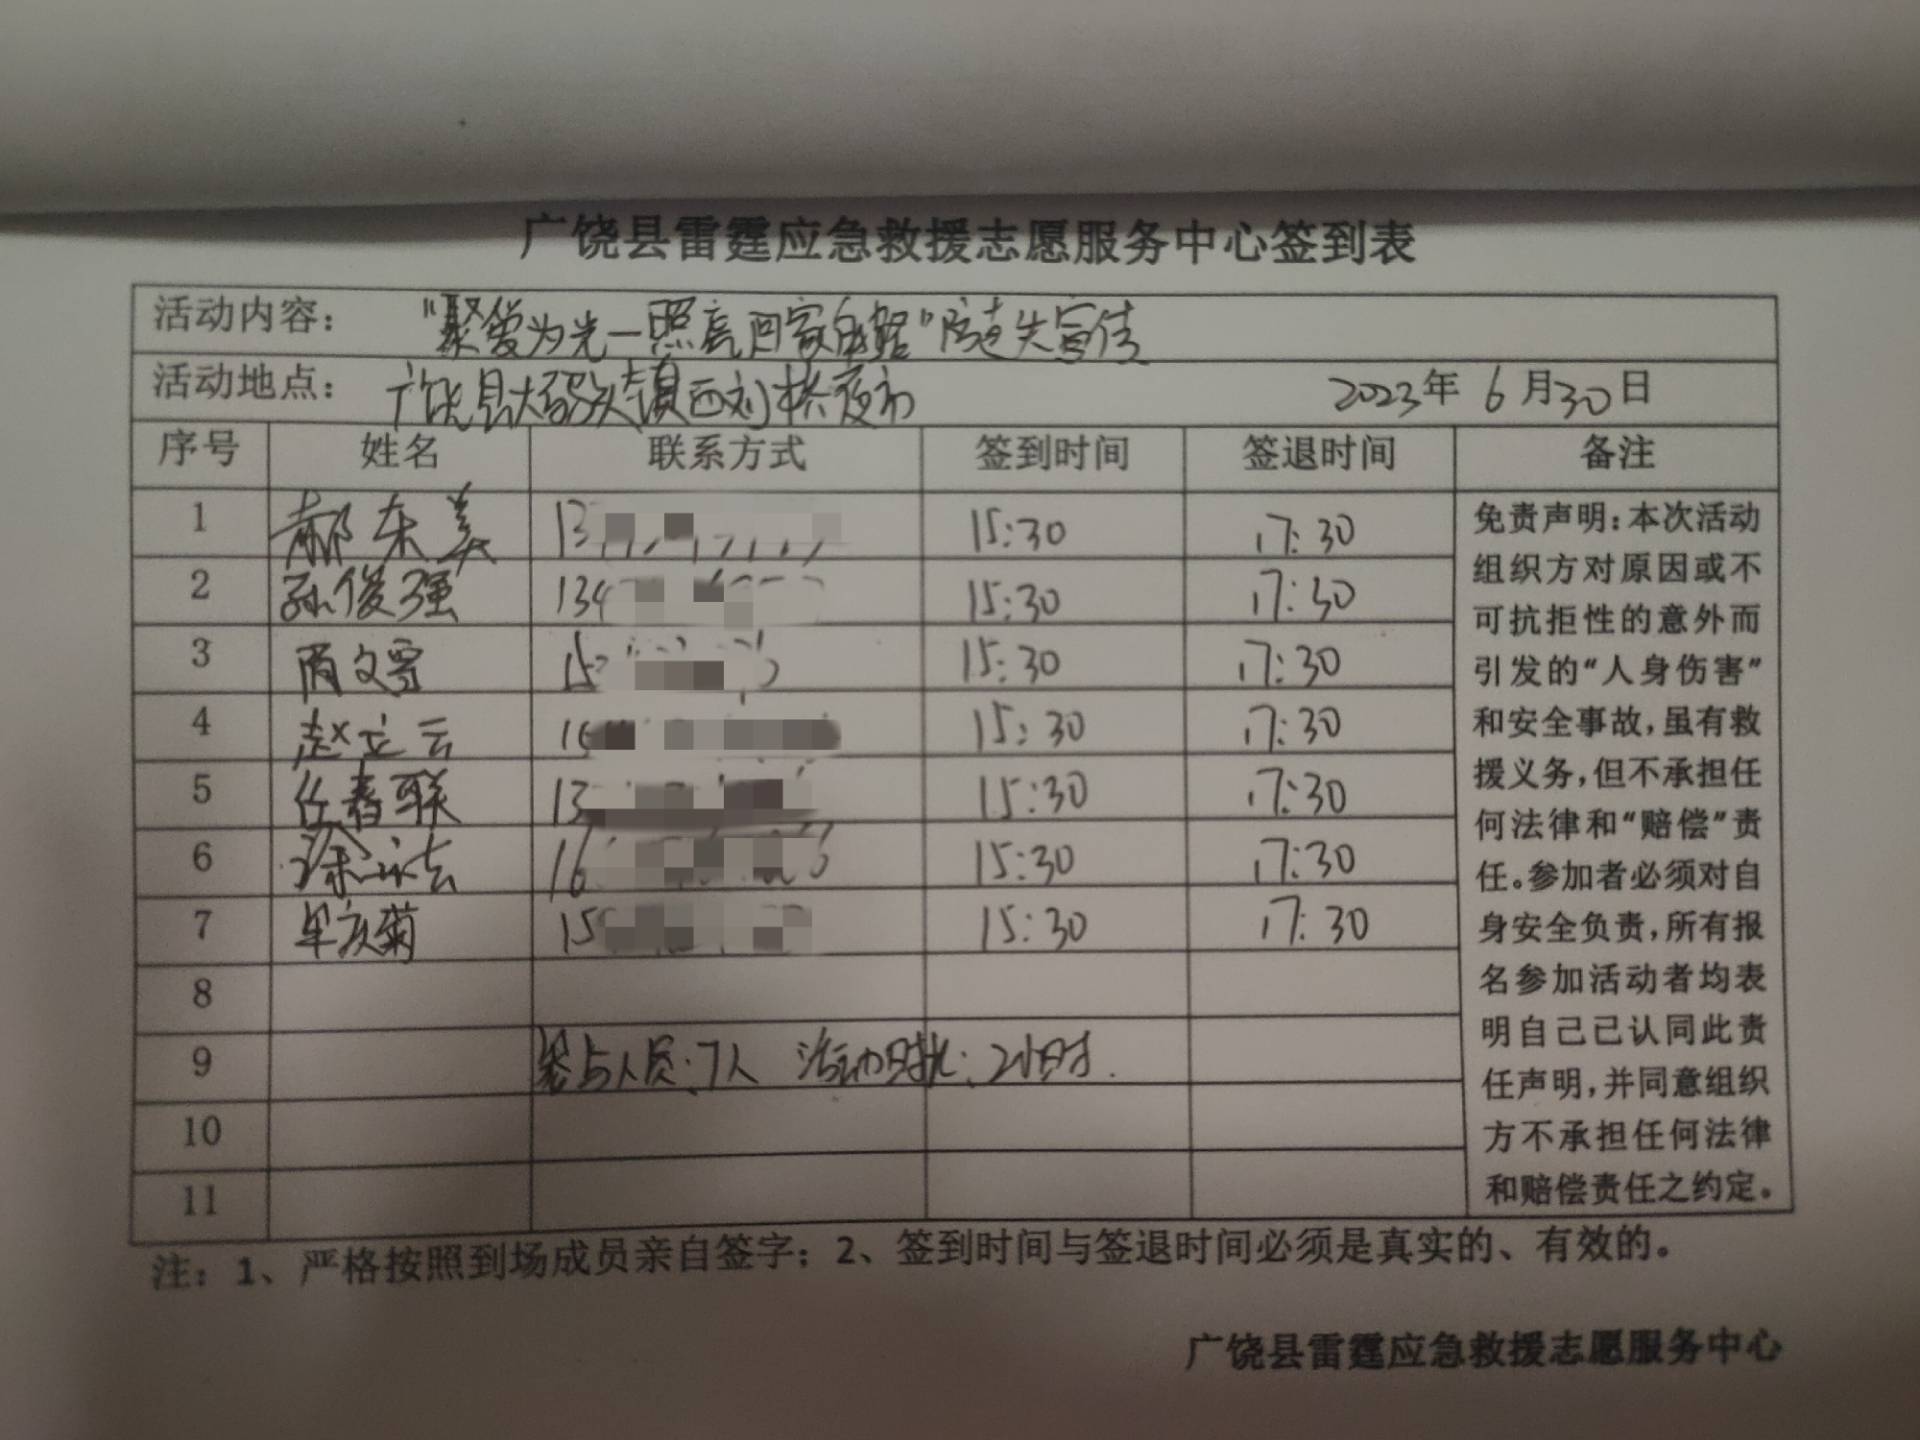 广饶县雷霆应急救援志愿服务中心签到表
活动内容： “聚爱为光一照亮回家自路”防走失宣传
活动地点： 广饶县大码头镇西刘桥夜市 2023年 6月30日
序号 姓名 联系方式 签到时间 签退时间 备注
1 郝东美 13 15:30 17:30
2 孙俊强 134 15:30 17:30
3 15 15:30 17:30
4 赵立云 15:30 17:30
5 任春联 13 15:30 17:30
6 徐 16 15:30 17:30
7 15 15:30 17:30
8
9 参与人员:7人 活动时长:2小时.
10
11
免责声明：本次活动
组织方对原因或不
可抗拒性的意外而
引发的“人身伤害”
和安全事故，虽有救
援义务，但不承担任
何法律和“赔偿”责
任。参加者必须对自
身安全负责，所有报
名参加活动者均表
明自己已认同此责
任声明，并同意组织
方不承担任何法律
和赔偿责任之约定。
注：1、严格按照到场成员亲自签字；2、签到时间与签退时间必须是真实的、有效的。
广饶县雷霆应急救援志愿服务中心